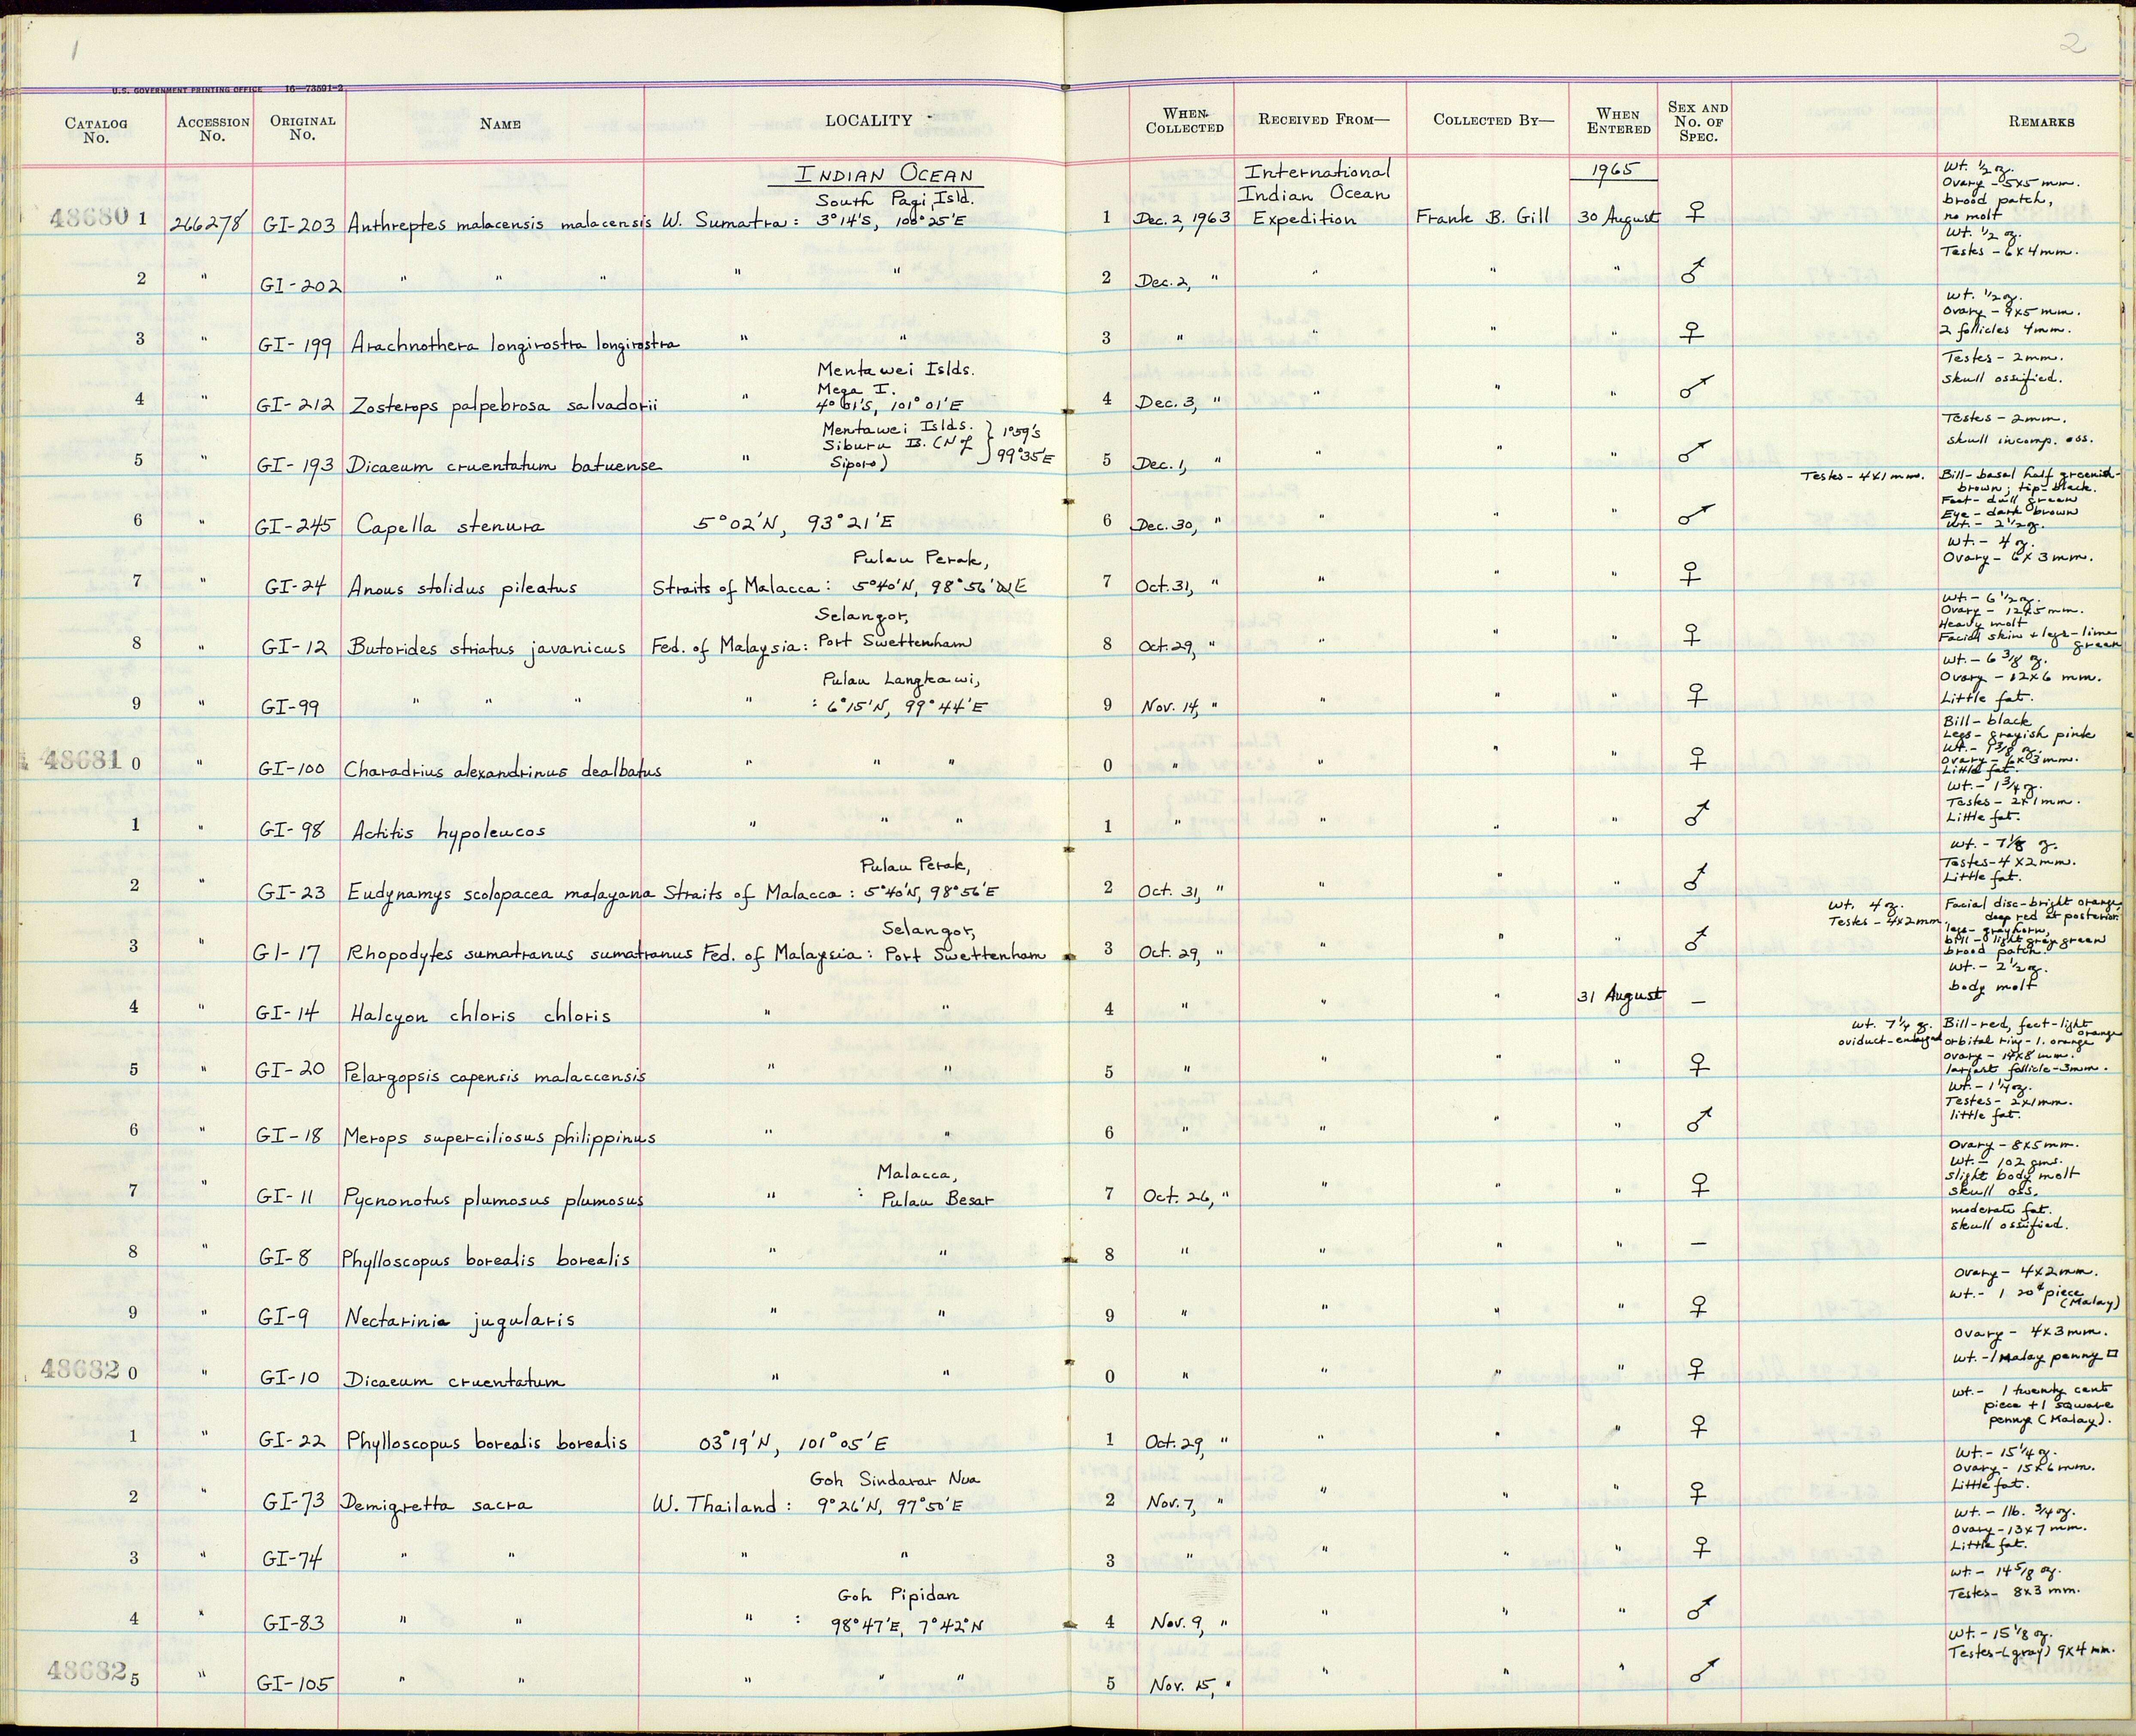 1
2
U.S. GOVERNMENT PRINTING OFFICE 16—73591-2
CATALOG No. ACCESSION No. ORIGINAL No. NAME LOCALITY WHEN COLLECTED RECEIVED FROM— COLLECTED BY— WHEN ENTERED SEX AND No. OF SPEC. REMARKS
INDIAN OCEAN International 1965 Wt. 1/2 oz.
South Pagi Isld. Indian Ocean Ovary - 5x5 mm. brood patch, no molt
48680 1 266278 GI-203 Anthreptes malacensis malacensis W. Sumatra: 3°14'S, 100°25'E 1 Dec. 2, 1963 Expedition Frank B. Gill 30 August ♀
2 " GI-202 " " " " " 2 Dec. 2, " " " " ♂ Wt. 1/2 oz. Testes - 6x4mm.
3 " GI-199 Arachnothera longirostra longirostra " " 3 " " " " ♀ Wt. 1/2 oz. Ovary - 9x5 mm. 2 follicles 4mm.
Mentawei Islds.
Mega I.
4 " GI-212 Zosterops palpebrosa salvadorii " 4°01'S, 101°01'E 4 Dec. 3, " " " " ♂ Testes - 2mm. skull ossified.
Mentawei Islds. } 1°59's
Siburu I. (N of } 99°35'E
5 " GI-193 Dicaeum cruentatum batuense " Siporo) 5 Dec. 1, " " " " ♂ Testes - 2mm. skull incomp. oss.
6 " GI-245 Capella stenura 5°02'N, 93°21'E 6 Dec. 30, " " " " ♂ Testes - 4x1 mm. Bill - basal half greenish-brown; tip-black. Feet - dull green Eye - dark brown Wt. - 2 1/2 oz.
Pulau Perak,
7 " GI-24 Anous stolidus pileatus Straits of Malacca: 5°40'N, 98°56'E 7 Oct. 31, " " " " ♀ Wt. - 4 oz. Ovary - 6x3mm.
Selangor,
8 " GI-12 Butorides striatus javanicus Fed. of Malaysia: Port Swettenham 8 Oct. 29, " " " " ♀ Wt - 6 1/2 oz. Ovary - 12x5mm. Heavy molt Facial skin + legs - lime green
Pulau Langkawi,
9 " GI-99 " " " " : 6°15'N, 99°44'E 9 Nov. 14, " " " " ♀ Wt. - 6 3/8 oz. Ovary - 12x6 mm. Little fat.
48681 0 " GI-100 Charadrius alexandrinus dealbatus " " " 0 " " " " ♀ Bill - black Legs - grayish pink Wt. - 1 3/8 oz. Ovary - 6x3mm. Little fat.
1 " GI-98 Actitis hypoleucos " " " 1 " " " " ♂ Wt. - 1 3/4 oz. Testes - 2x1mm. Little fat.
Pulau Perak,
2 " GI-23 Eudynamys scolopacea malayana Straits of Malacca: 5°40'N, 98°56'E 2 Oct. 31, " " " " ♂ Wt. - 7 1/8 oz. Testes - 4x2mm. Little fat.
Selangor,
3 " GI-17 Rhopodytes sumatranus sumatranus Fed. of Malaysia: Port Swettenham 3 Oct. 29, " " " " ♂ Wt. 4 oz. Testes - 4x2mm. Facial disc-bright orange, deep red at posterior. legs - grayhorn, bill - light gray green brood patch.
4 " GI-14 Halcyon chloris chloris " " 4 " " " 31 August — Wt. - 2 1/2 oz. body molt
5 " GI-20 Pelargopsis capensis malaccensis " " 5 " " " " ♀ Wt. 7 1/4 oz. oviduct-enlarged Bill-red, feet-light orange orbital ring - l. orange Ovary - 14x8 mm. largest follicle - 3mm.
6 " GI-18 Merops superciliosus philippinus " " 6 " " " " ♂ Wt. - 1 1/4 oz. Testes - 2x1mm. little fat.
Malacca,
7 " GI-11 Pycnonotus plumosus plumosus " : Pulau Besar 7 Oct. 26, " " " " ♀ Ovary - 8x5mm. Wt. - 102 gms. slight body molt skull oss.
8 " GI-8 Phylloscopus borealis borealis " " 8 " " " " — moderate fat. skull ossified.
9 " GI-9 Nectarinia jugularis " " 9 " " " " ♀ Ovary - 4x2mm. Wt. - 1 20¢ piece (Malay)
48682 0 " GI-10 Dicaeum cruentatum " " 0 " " " " ♀ Ovary - 4x3mm. Wt. - 1 Malay penny □
1 " GI-22 Phylloscopus borealis borealis 03°19'N, 101°05'E 1 Oct. 29, " " " " ♀ Wt. - 1 twenty cent piece + 1 square penny (Malay).
Goh Sindarar Nua
2 " GI-73 Demigretta sacra W. Thailand: 9°26'N, 97°50'E 2 Nov. 7, " " " " ♀ Wt. - 15 1/4 oz. Ovary - 15x6mm. Little fat.
3 " GI-74 " " " " 3 " " " " ♀ Wt. - 1lb. 3/4 oz. Ovary - 13x7mm. Little fat.
Goh Pipidan
4 " GI-83 " " " : 98°47'E, 7°42'N 4 Nov. 9, " " " " ♂ Wt. - 14 5/8 oz. Testes - 8x3 mm.
48682 5 " GI-105 " " " " " 5 Nov. 15, " " " " ♂ Wt. - 15 1/8 oz. Testes - (gray) 9x4 mm.